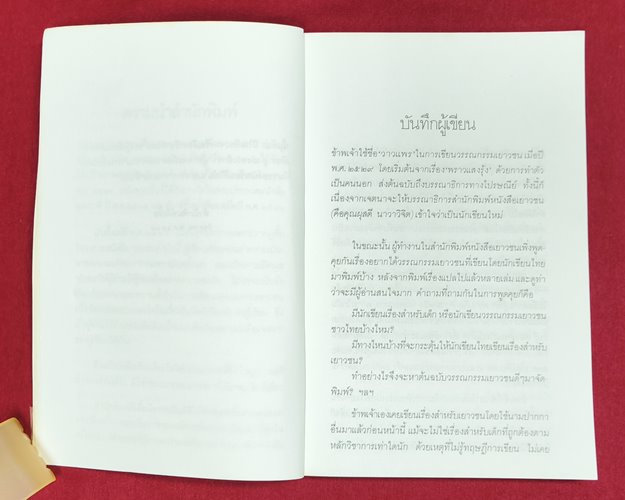 บันทึกผู้เขียน
ข้าพเจ้าใช้ชื่อ"วาวแพร"ในการเขียนวรรณกรรมเยาวชน เมื่อปี
พ.ศ. ๒๕๒๙ โดยเริ่มต้นจากเรื่อง"พราวแสงรุ้ง" ด้วยการทำตัว
เป็นคนนอก ส่งต้นฉบับถึงบรรณาธิการทางไปรษณีย์ ทั้งนี้ก็
เนื่องจากเจตนาจะให้บรรณาธิการสำนักพิมพ์หนังสือเยาวชน
(คือคุณผุสดี นาวาวิจิต) เข้าใจว่าเป็นนักเขียนใหม่
ในขณะนั้น ผู้ทำงานในสำนักพิมพ์หนังสือเยาวชนเพิ่งพูด
คุยกันเรื่องอยากได้วรรณกรรมเยาวชนที่เขียนโดยนักเขียนไทย
มาพิมพ์บ้าง หลังจากพิมพ์เรื่องแปลไปแล้วหลายเล่ม และดูท่า
ว่าจะมีผู้อ่านสนใจมาก คำถามที่ถามกันในการพูดคุยก็คือ
มีนักเขียนเรื่องสำหรับเด็ก หรือนักเขียนวรรณกรรมเยาวชน
ชาวไทยบ้างไหม?
มีทางไหนบ้างที่จะกระตุ้นให้นักเขียนไทยเขียนเรื่องสำหรับ
เยาวชน?
ทำอย่างไรจึงจะหาต้นฉบับวรรณกรรมเยาวชนดีๆมาจัด
พิมพ์? ฯลฯ
ข้าพเจ้าเองเคยเขียนเรื่องสำหรับเยาวชนโดยใช้นามปากกา
อื่นมาแล้วก่อนหน้านี้ แม้จะไม่ใช่เรื่องสำหรับเด็กที่ถูกต้องตาม
หลักวิชาการเท่าใดนัก ด้วยเหตุที่ไม่รู้ทฤษฎีการเขียน ไม่เคย